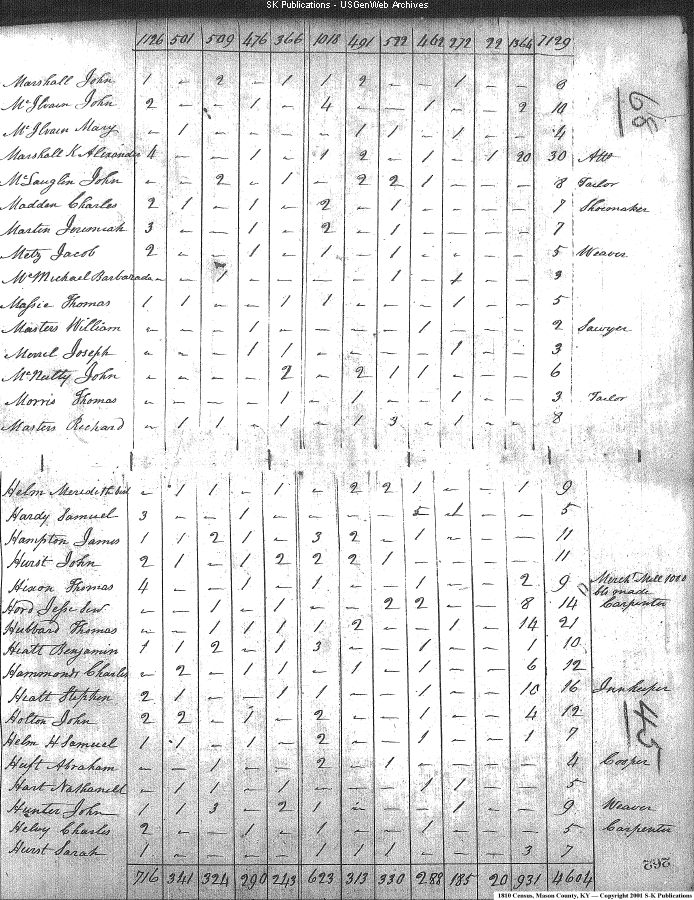 SK Publications - USGenWeb Archives
1126 501 509 476 366 1018 491 522 462 272 22 1364 7129
Marshall John 1 - 2 - 1 1 2 - - 1 - - 8
McIlvain John 2 - - 1 - 4 - - 1 - - 2 10
McIlvain Mary - 1 - - - - 1 1 - 1 - - 4
Marshall K Alexander 4 - - 1 - 1 2 - 1 - 1 20 30 Atto
McLauglin John - - 2 - 1 - 2 2 1 - - - 8 Tailor
Madden Charles 2 1 - 1 - 2 - 1 - - - - 7 Shoemaker
Martin Jeremiah 3 - - 1 - 2 - 1 - - - - 7
Metz Jacob 2 - - 1 - 1 - 1 - - - - 5 Weaver
McMichael Barbarada - - 1 - - - - 1 - 1 - - 3
Massie Thomas 1 1 - - 1 1 - - - 1 - - 5
Masters William - - - 1 - - - - 1 - - - 2 Sawyer
Morrel Joseph - - - 1 1 - - - - 1 - - 3
McNutty John - - - - 2 - 2 1 1 - - - 6
Morris Thomas - - - - 1 - 1 - - 1 - - 3 Tailor
Masters Richard - 1 1 - 1 - 1 3 - 1 - - 8
68
Helm Meredith 1 1 - 1 - 2 2 1 - - 1 9
Hardy Samuel 3 - - 1 - - - - - 1 - - 5
Hampton James 1 1 2 1 - 3 2 - 1 - - - 11
Hurst John 2 1 - 1 2 2 2 1 - - - - 11
Hixon Thomas 4 - - 1 - 1 - - 1 - - 2 9 Mercht Mill 1000
bls made
Hord Jesse Senr - - 1 - 1 - - 2 2 - - 8 14 Carpenter
Hubbard Thomas - - 1 1 1 1 2 - 1 - - 14 21
Heatt Benjamin 1 1 2 - 1 3 - - 1 - - 1 10
Hammonds Charles - 2 - 1 1 - 1 - 1 - - 6 12
Heatt Stephen 2 1 - - 1 1 - - 1 - - 10 16 Innkeeper
Holton John 2 2 - 1 - 2 - - 1 - - 4 12
Helm H Samuel 1 1 - 1 - 2 - - 1 - - 1 7
Huft Abraham - - 1 - - 2 - 1 - - - - 4 Cooper
Hart Nathaniell - 1 1 - 1 - - - 1 1 - - 5
Hunter John 1 1 3 - 2 1 - - - 1 - - 9 Weaver
Helvy Charles 2 - - 1 - 1 - - 1 - - - 5 Carpenter
Hurst Sarah 1 - - - - 1 1 1 - - - 3 7
45
716 341 324 290 243 623 313 330 288 185 20 931 4604
292
1810 Census, Mason County, KY — Copyright 2001 S-K Publications